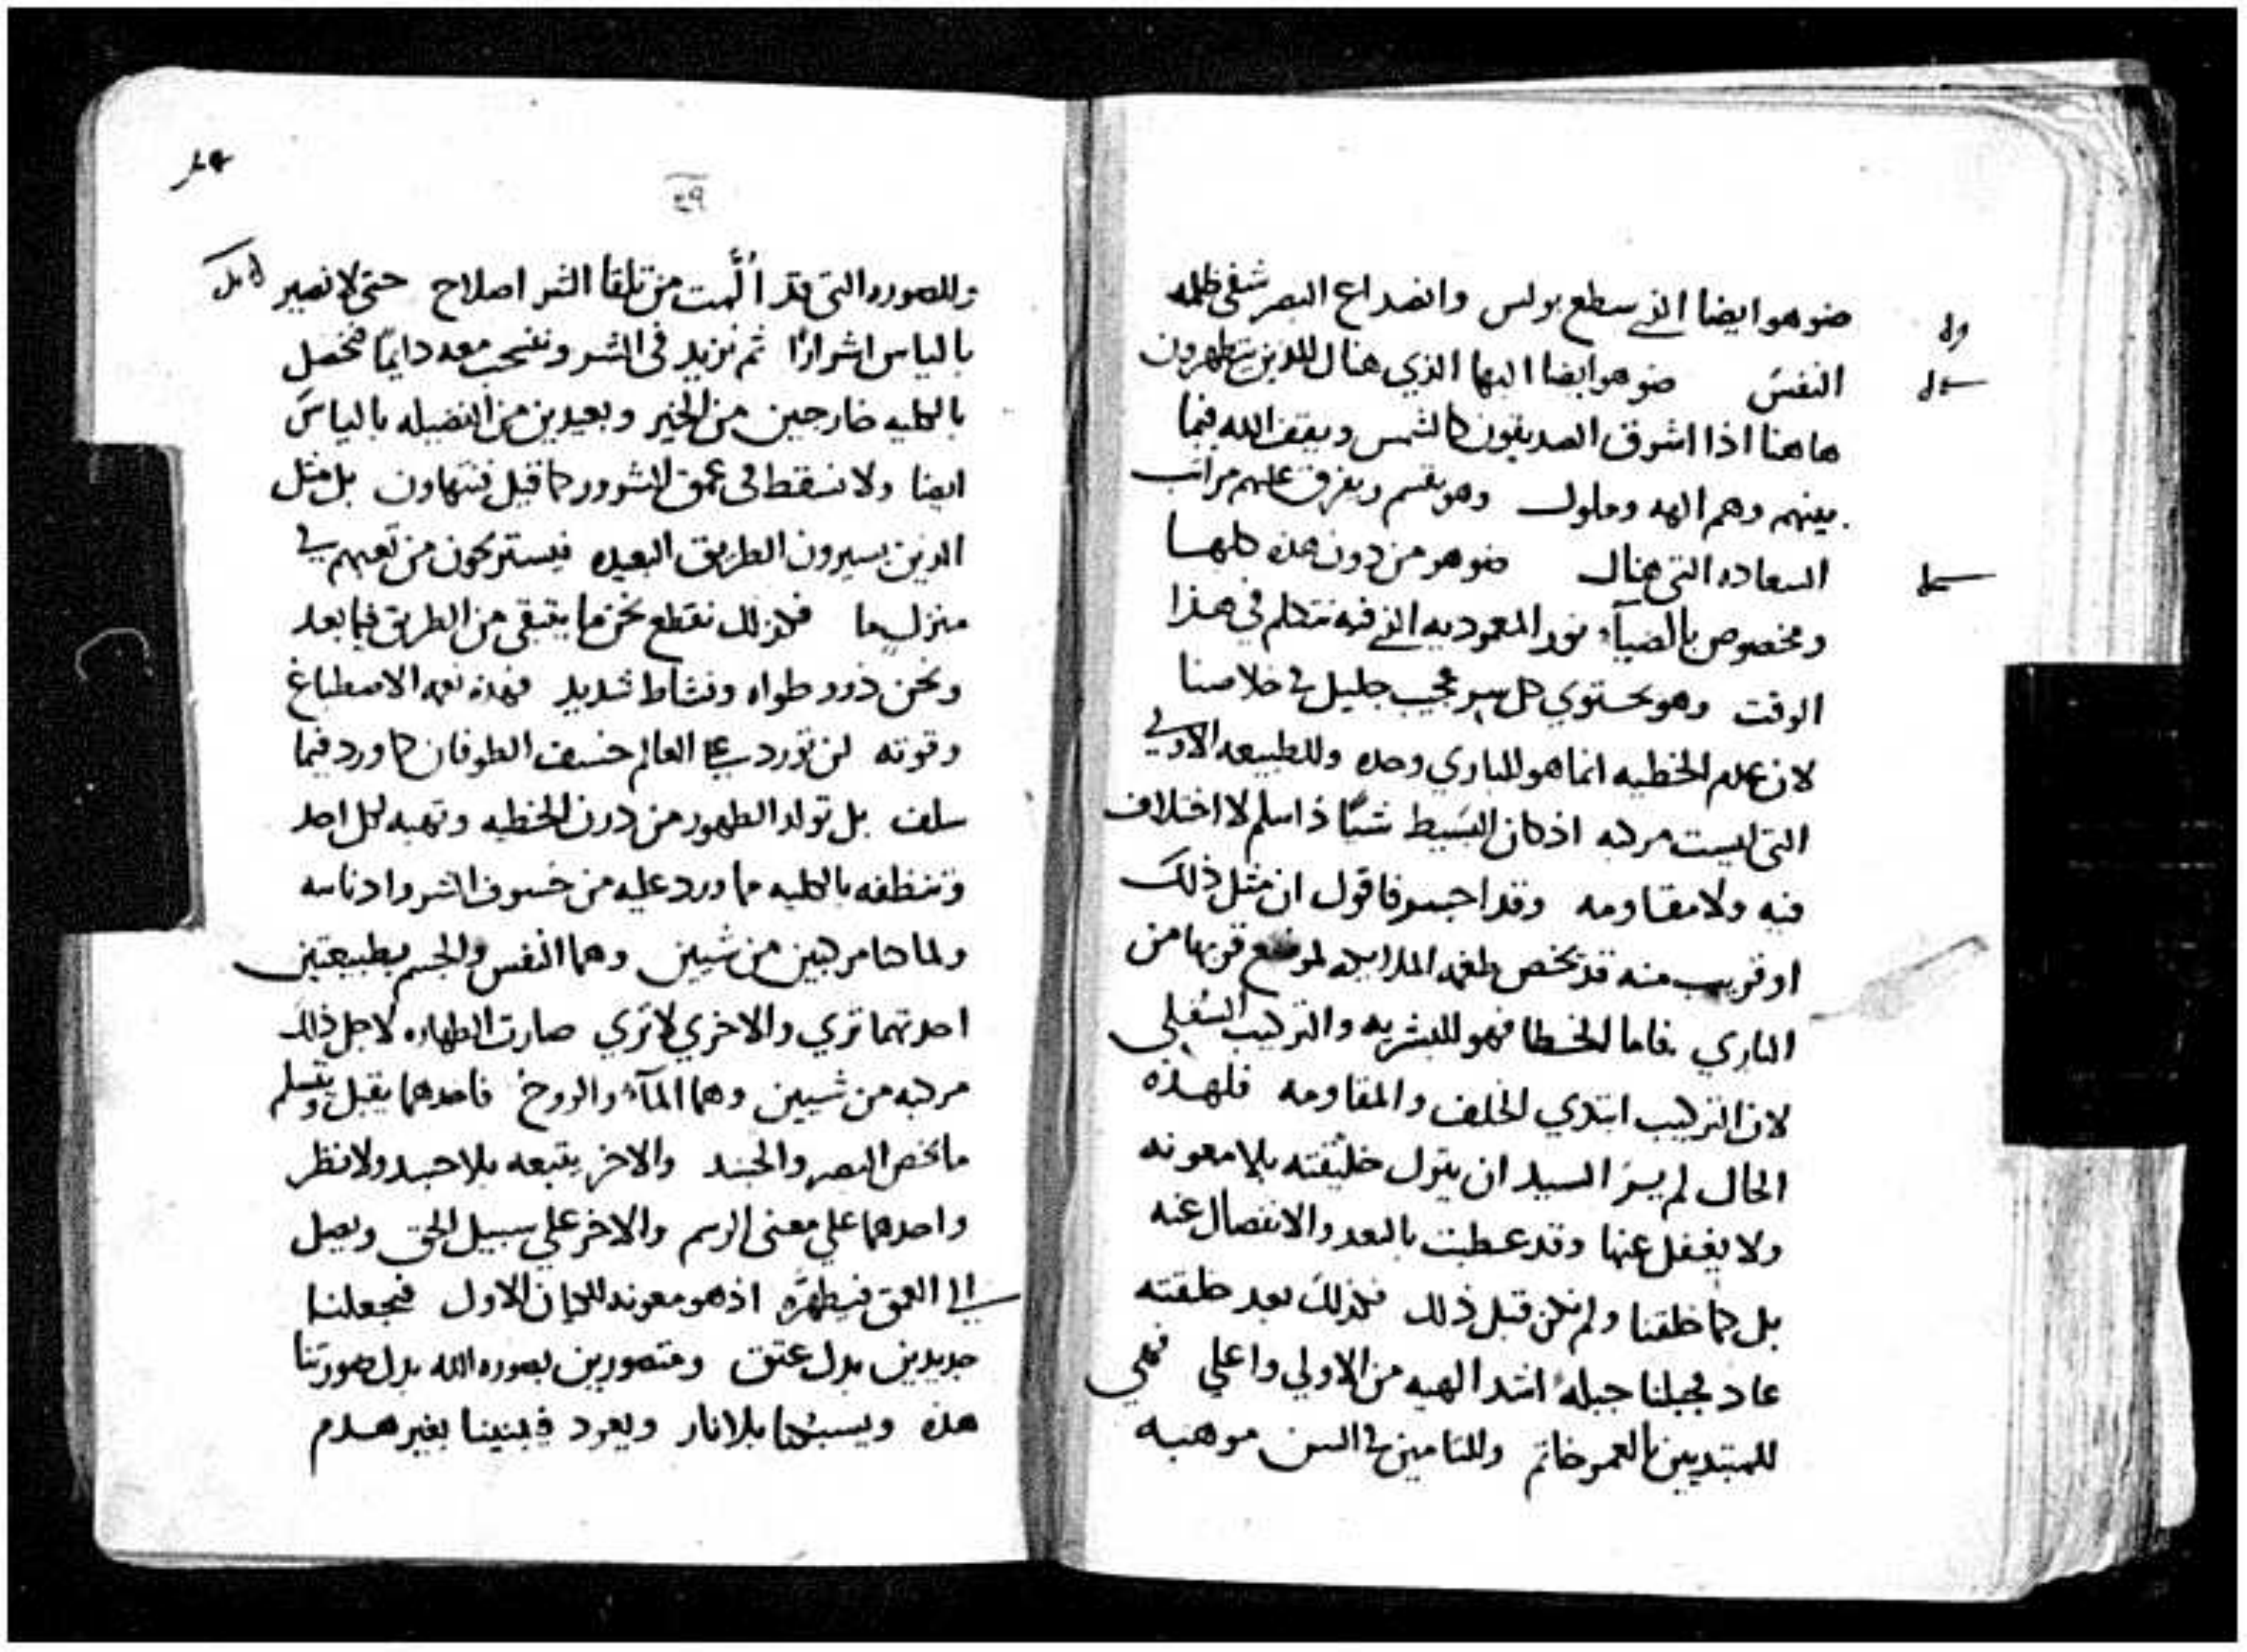 ضو هو ايضا الذي سطع بولس وانصداع البصر شفي ظلمه
النفس ضو هو ايضا البها الذي هناك للذين يتطهرون
هاهنا اذا اشرق الصديقون كالشمس ويقف الله فيما
بينهم وهم الهه وملوك وهو يقسم ويفرق عليهم مراتب
السعاده التي هناك ضو هو من دون هذه كلها
ومخصوص بالضيآء نور المعموديه الذي فيه نتكلم في هذا
الوقت وهو يحتوي كل سر عجيب جليل في خلاصنا
لان عدم الخطيه انما هو للباري وحده وللطبيعه الاولي
التي ليست مركبه اذ كان البسيط شيًا ذا سلم لا اختلاف
فيه ولا مقاومه وقد اجسر فاقول ان مثل ذلك
او قريب منه قد يخص طغمه الملايكه لموضع قربها من
الباري فاما الخطا فهو للبشريه والتركيب السفلي
لان التركيب ابتدي الخلف والمقاومه فلهذه
الحال لم ير السيد ان يترك خليقته بلا معونه
ولا يغفل عنها وقد عطبت بالبعد والانفصال عنه
بل كما خلقنا ولم نكن قبل ذلك فلذلك بعد خلقته
عاد فجبلنا جبلةً اشد الهيه من الاولي واعلي فهي
للمبتديين بالعمر خاتم وللتامين في السن موهبه
٤٩
وللصوره التي قد أُلّمت من تلقا الشر اصلاح حتي لا نصير
بالياس اشرارًا ثم نزيد في الشر وننسحب معه دايمًا فنحصل
بالكليه خارجين من الخير وبعيدين من الفضيله بالياس
ايضا ولا نسقط في عمق الشرور كما قيل فنتهاون بل مثل
الذين يسيرون الطريق البعيده فيستريحون من تعبهم في
منزل ما فكذلك نقطع نحن ما يتبقي من الطريق فيما بعد
ونحن ذوو طراوه ونشاط شديد فهذه نعمه الاصطباغ
وقوته لن تورد علي العالم خسف الطوفان كما ورد فيما
سلف بل تولد الطهور من درن الخطيه وتهبه لكل احد
وتنظفه بالكليه مما ورد عليه من خسوف الشر وادناسه
ولما كنا مركبين من شيين وهما النفس والجسم بطبيعتين
احدتهما تري والاخري لا تري صارت الطهاره لاجل ذلك
مركبه من شيين وهما المآء والروح فاحدهما يقبل ويتسلم
ما يخص البصر والجسد والاخر يتبعه بلا جسد ولا نظر
واحدهما علي معني الرسم والاخر علي سبيل الحق ويصل
الي العمق فيطهره اذ هو معونه للكيان الاول فيجعلنا
جديدين بدل عتق ومتصورين بصوره الله بدل صورتنا
هذه ويسبكنا بلا نار ويعود فيبنينا بغير هدم